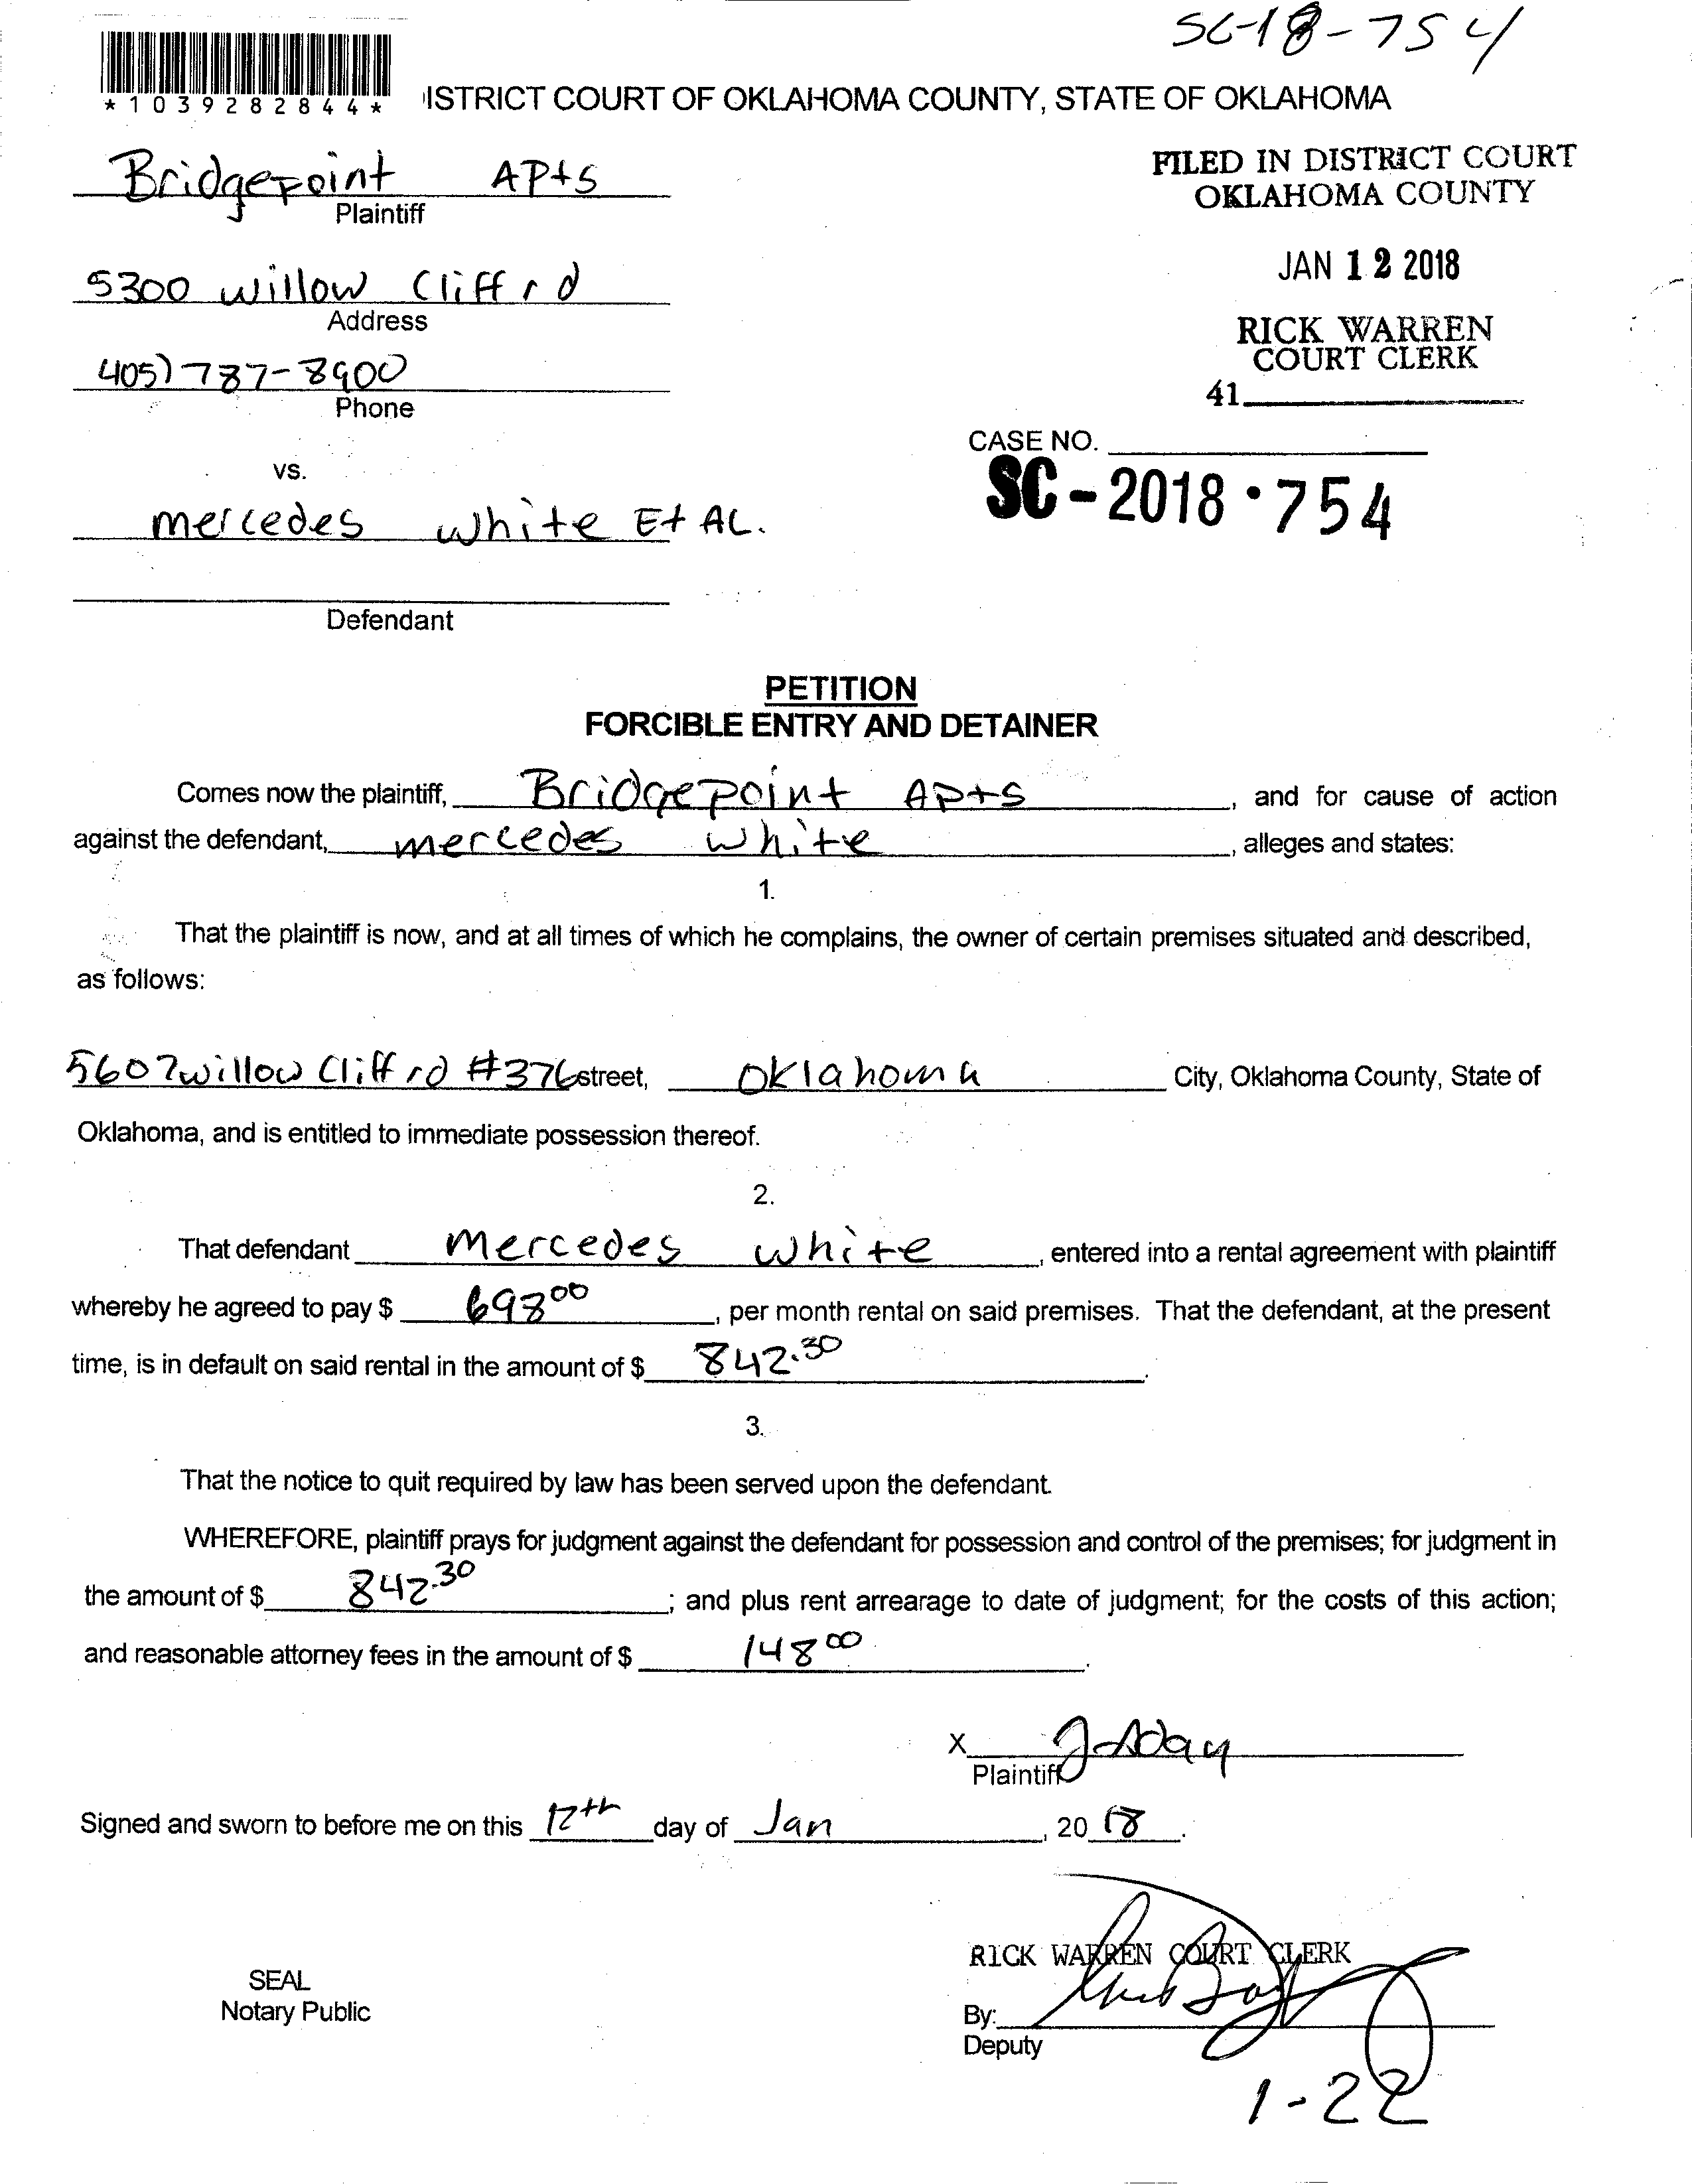 SC-18-754
*1039282844*
ISTRICT COURT OF OKLAHOMA COUNTY, STATE OF OKLAHOMA
Bridgepoint APts
Plaintiff
FILED IN DISTRICT COURT
OKLAHOMA COUNTY
JAN 12 2018
RICK WARREN
COURT CLERK
41
5300 willow Cliff rd
Address
405) 787-8900
Phone
CASE NO.
SC-2018-754
vs.
mercedes white Et AL.
Defendant
PETITION
FORCIBLE ENTRY AND DETAINER
Comes now the plaintiff, Bridgepoint APts, and for cause of action
against the defendant, mercedes white, alleges and states:
1.
That the plaintiff is now, and at all times of which he complains, the owner of certain premises situated and described,
as follows:
5607 willow Cliff rd #376 street, Oklahoma City, Oklahoma County, State of
Oklahoma, and is entitled to immediate possession thereof.
2.
That defendant Mercedes white, entered into a rental agreement with plaintiff
whereby he agreed to pay $ 698 00, per month rental on said premises. That the defendant, at the present
time, is in default on said rental in the amount of $ 842.30.
3.
That the notice to quit required by law has been served upon the defendant.
WHEREFORE, plaintiff prays for judgment against the defendant for possession and control of the premises; for judgment in
the amount of $ 842.30; and plus rent arrearage to date of judgment; for the costs of this action;
and reasonable attorney fees in the amount of $ 148 00.
X
Plaintiff
Signed and sworn to before me on this 12th day of Jan, 20 18.
RICK WARREN COURT CLERK
SEAL
Notary Public
By:
Deputy
1-22